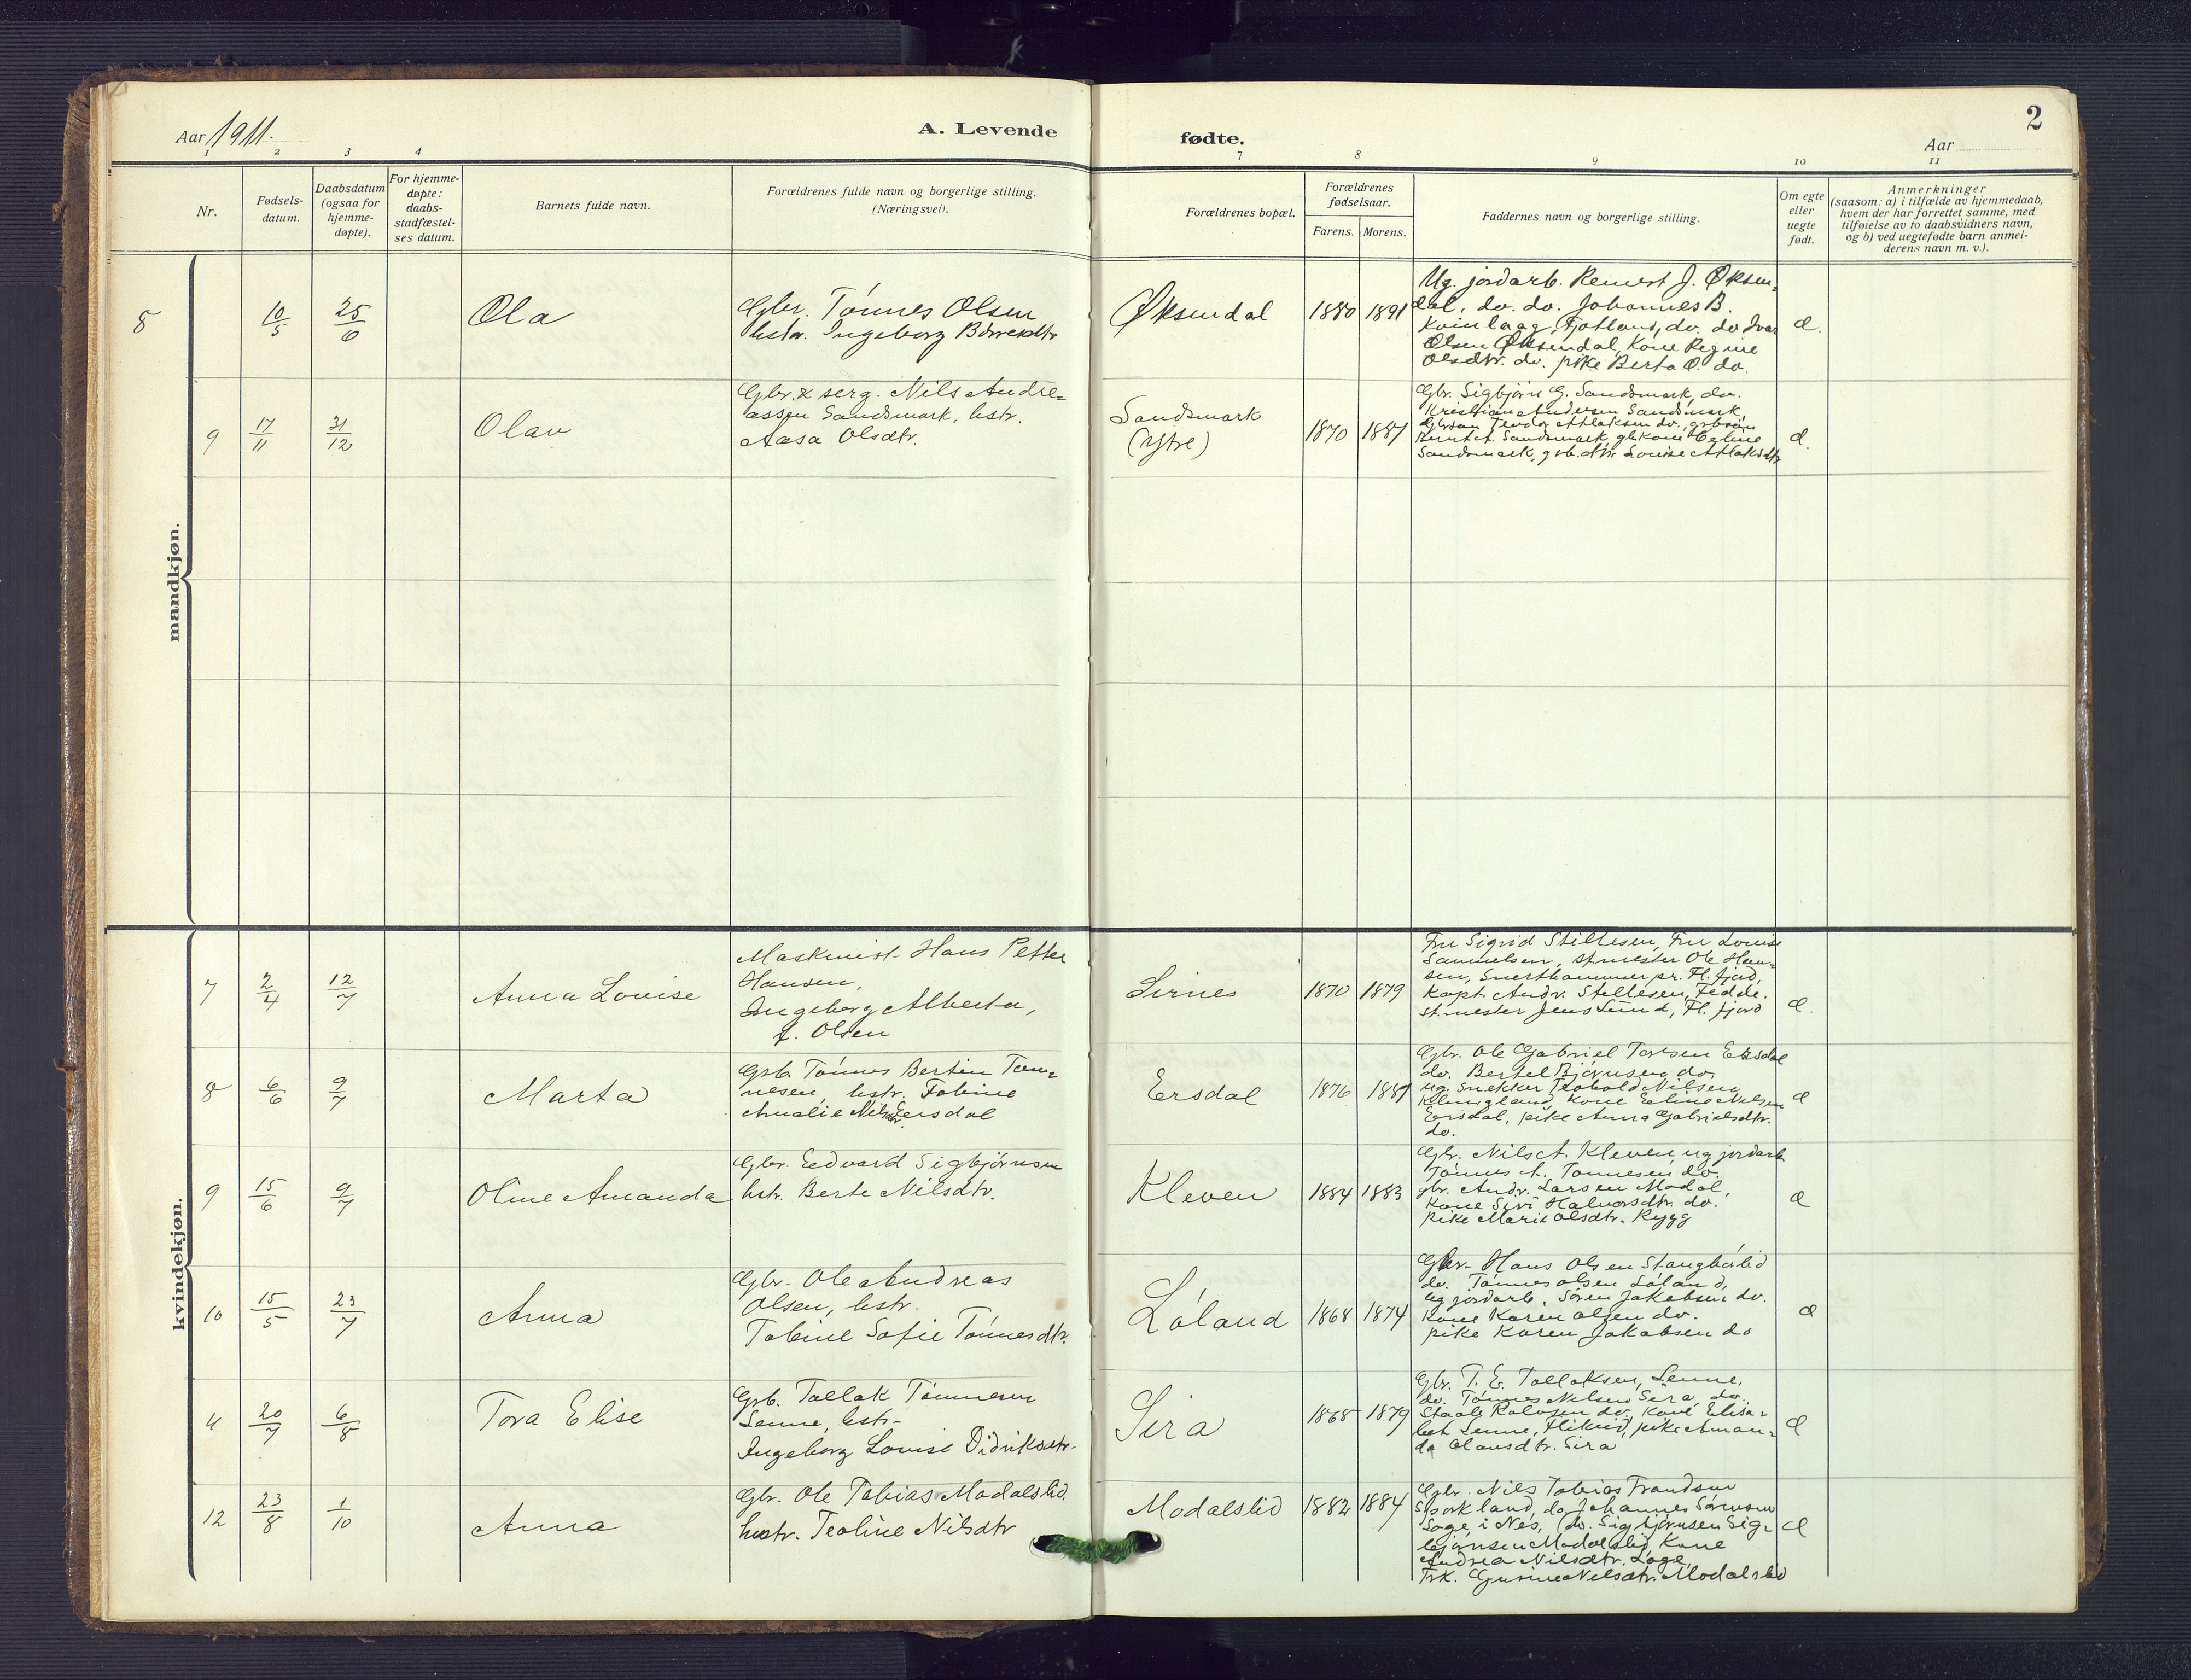 2
Aar 1911.
A. Levende
fødte.
Aar
1 2 3 4 7 8 9 10 11
Nr.
Fødsels-
datum.
Daabsdatum
(ogsaa for
hjemme-
døpte).
For hjemme-
døpte:
daabs-
stadfæstel-
ses datum.
Barnets fulde navn.
Forældrenes fulde navn og borgerlige stilling.
(Næringsvei).
Forældrenes bopæl.
Forældrenes
fødselsaar.
Farens. Morens.
Faddernes navn og borgerlige stilling.
Om egte
eller
uegte
født.
Anmerkninger
(saasom: a) i tilfælde av hjemmedaab,
hvem der har forrettet samme, med
tilføielse av to daabsvidners navn,
og b) ved uegtefødte barn anmel-
derens navn m. v.).
mandkjøn.
8 10/5 25/6 Ola
Gbr. Tónnes Olsen
hstr. Ingeborg Berentdtr
Øksendal 1880 1891
Ug. jordarb. Reinert J. Øksen-
dal, do. do. Johannes B.
Kvinlaag, Fjotland, do. do Ivar
Olsen Øksendal, Kone Regine
Olsdtr. do. pike Berta O. do.
9 17/11 31/12 Olav
Gbr. & serg. Nils Andre-
assen Sandsmark, hstr.
Aasa Olsdtr.
Sandsmark
(Ytre)
1870 1887
Gbr. Sigbjørn G. Sandsmark, do.
Kristian Andersen Sandsmark,
Teodor Atlaksen do.
Sandsmark
Sandsmark, grb.dtr. Louise Atlaksdtr
kvindekjøn.
7 2/4 12/7 Anna Louise
Maskinist Hans Petter
Hansen,
Ingeborg Alberta,
f. Olsen
Sirnes 1870 1879
Fru Sigrid Stillesen, Fru Louise
Samuelsen, st.mester Ole Han-
sen, pr. Fl. fjord,
Kapt. Andr. Stillesen, Fedde.
st.mester Jens Lund, Fl. fjord
8 6/6 9/7 Marta
Gsb. Tónnes Bertin Tøn-
nesen, hstr. Tobine
Amalie Nilsdtr. Ersdal
Ersdal 1876 1887
Gbr. Ole Gabriel Torsen Ersdal
do. Bertel Bjórnsen do.
ug. snekker Teobald Nilsen
Klungland, Kone Eline Nilsen
Ersdal, pike Anna Gabrielsdtr.
do.
9 15/6 9/7 Oline Amanda
Gbr. Edvard Sigbjórnsen
hstr. Berte Nilsdtr.
Kleven 1884 1883
Gbr. Nils A. Kleven, ug jordarb.
Tónnes A. Tonnesen do.
gbr. Andr. Larsen Modal,
Kone Siri Halvorsdtr. do.
pike Marie Olsdtr. Rygg
10 15/5 23/7 Anna
Gbr. Ole Andreas
Olsen, hstr.
Tobine Sofie Tónnesdtr.
Lóland 1868 1874
Gbr. Hans Olsen Stangborlid
do. Tónnes Olsen Lóland,
ug jordarb. Sóren Jakobsen do.
Kone Karen Olsen do.
pike Karen Jakobsen do
11 20/7 6/8 Tora Elise
Grb. Tallak Tónnesen
Senne, hstr.
Ingeborg Lovise Didriksdtr.
Sira 1868 1879
Gbr. T. E. Tallaksen, Senne,
do. Tónnes Nilsen Sira, do.
Staale Rolvsen do, Kone Elisa-
bet Senne, Flikeid, pike Aman-
da Olausdtr. Sira
12 23/8 1/10 Anna
Gbr. Ole Tobias Modalslid
hustr. Teoline Nilsdtr
Modalslid 1882 1884
Gbr. Nils Tobias Frandsen
Sporkland, do. Johannes Sórensen
Loge i Nes, do. Sigbjórnsen Sig-
bjórnsen Modalslid, Kone
Andrea Nilsdtr. Loge,
Frk. Gurine Nilsdtr. Modalslid